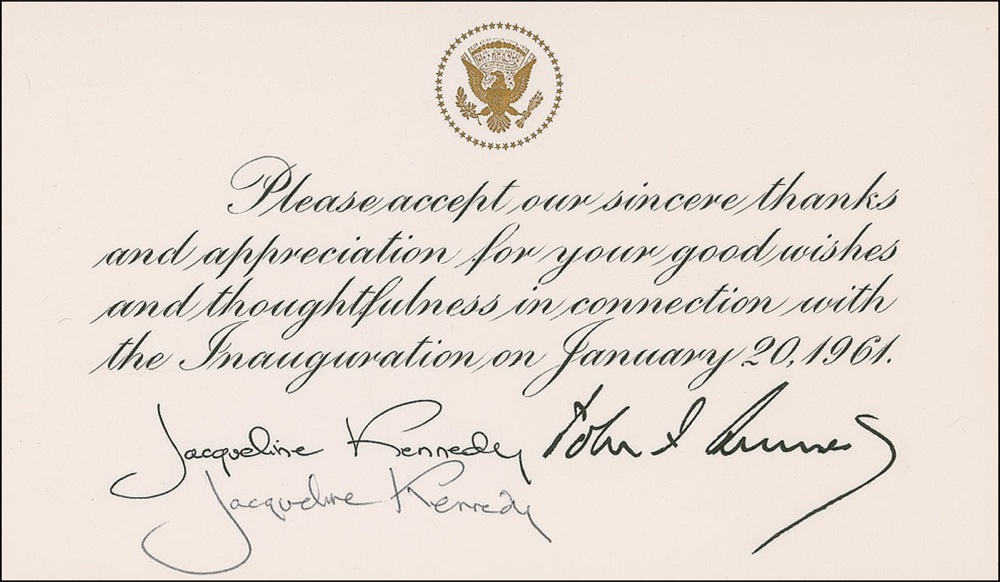 Please accept our sincere thanks
and appreciation for your good wishes
and thoughtfulness in connection with
the Inauguration on January 20, 1961.
Jacqueline Kennedy John F. Kennedy
Jacqueline Kennedy